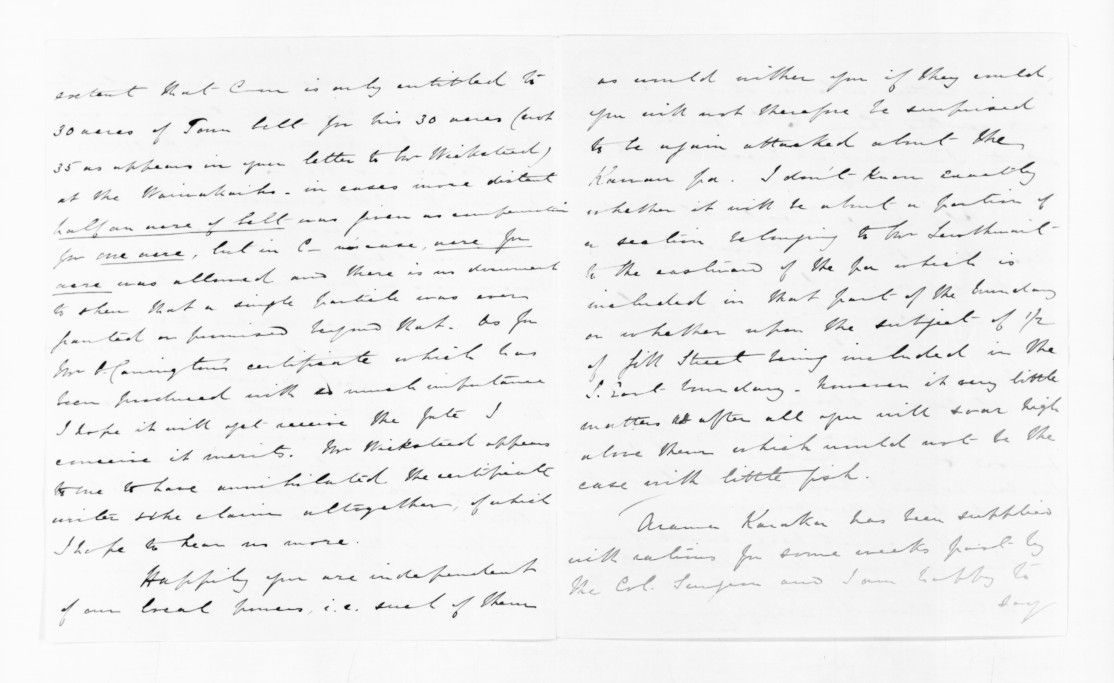 extent that C— is only entitled to
30 acres of Town belt for his 30 acres (not
35 as appears in your letter to Mr Wicksteed)
at the Waiwakaiho - in cases more distant
half an acre of belt was given as compensation
for one acre, but in C—'s case, acre for
acre was allowed and there is no document
to shew that a single particle was ever
granted or promised beyond that. As for
Mr O. Carrington's certificate which has
been produced with so much importance
I hope it will yet receive the fate I
conceive it merits. Mr Wicksteed appears
to me to have annihilated the certificate
writer & the claim altogether, of which
I hope to hear no more.
Happily you are independent
of our local powers, i.e. such of them
as would wither you if they could,
you will not therefore be surprised
to be again attacked about the
Kawau pa. I don't know exactly
whether it will be about a portion of
a section belonging to Mr
to the eastward of the pa which is
included in that part of the boundary
or whether upon the subject of 1/2
of Gill Street being included in the
S. East boundary - however it very little
matters after all you will soar high
above them which would not be the
case with little fish.
Arama Karaka has been supplied
with rations for some weeks past by
the Col. Surgeon and I am happy to
say